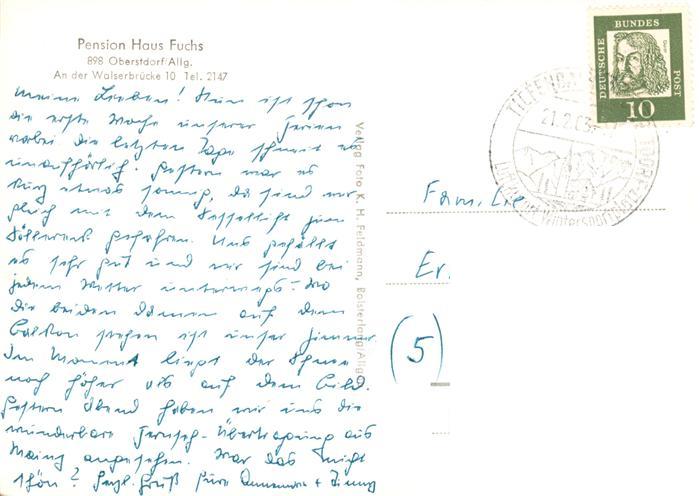 Pension Haus Fuchs
898 Oberstdorf/Allg.
An der Walserbrücke 10 Tel. 2147
meine Lieben! Nun ist schon
die erste Woche unserer Ferien
vorbei die letzten Tage schneit es
unaufhörlich. Gestern war es
kurz etwas sonnig, da sind wir
gleich mit dem Sessellift zum
Söllereck gefahren. Uns gefällt
es sehr gut und wir sind bei
jedem Wetter unterwegs. Wo
die beiden Damen auf dem
Balkon stehen ist unser Zimmer.
Im Moment liegt der Schnee
noch höher als auf dem Bild.
Gestern Abend haben wir uns die
wunderbare Fernseh-Übertragung aus
Mainz angesehen. War das nicht
schön? Herzl. Gruß Eure Annemarie +
Verlag Foto K. H. Feldmann, Bolsterlang/Allg.
Familie
Er.
(5)
DEUTSCHE BUNDES POST
10
21.2.63